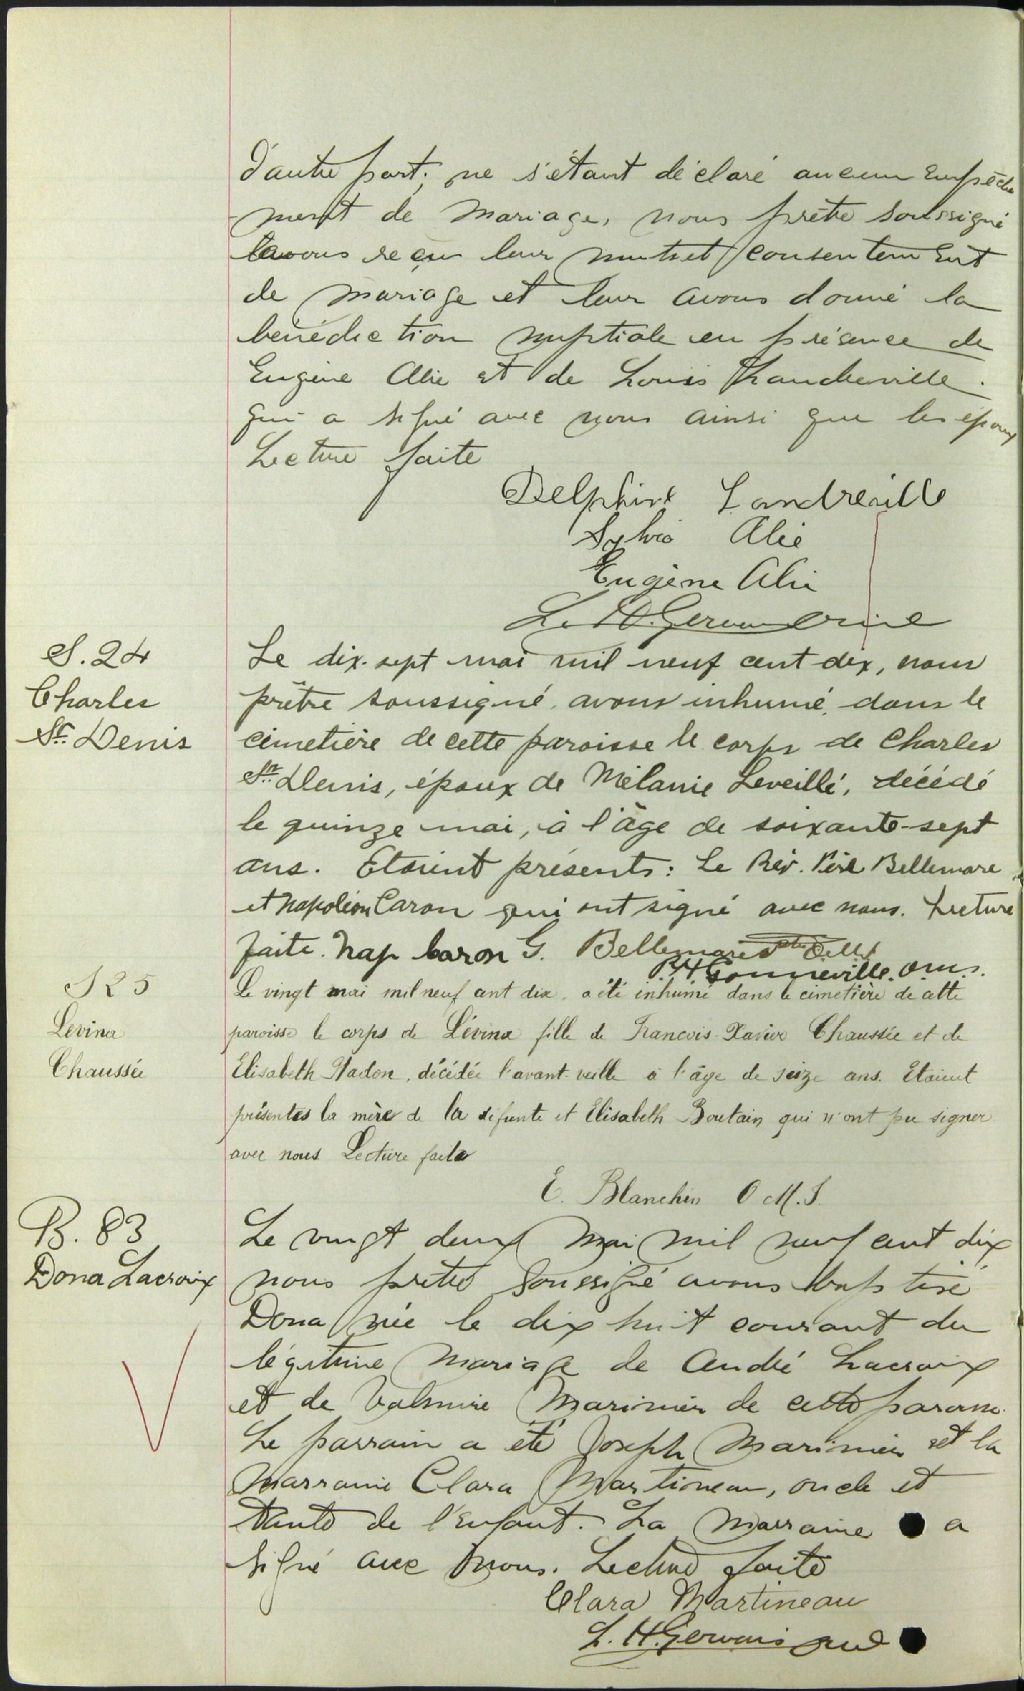 d'autre part; ne s'étant déclaré aucun Empêche
-ment de Mariage, nous prêtre soussigné
avons reçu leur mutuel consentement
de Mariage et leur avons donné la
bénédiction nuptiale en présence de
Eugène Alie et de Louis Landreville.
qui a signé avec nous ainsi que les époux
Lecture faite
Delphine Landreville
Sylvio Alie
Eugène Alie
L. H. Gervais omi
S. 24
Charles
St Denis
Le dix-sept mai mil neuf cent dix, nous
prêtre soussigné, avons inhumé dans le
cimetière de cette paroisse le corps de Charles
St Denis, époux de Mélanie Leveillé, décédé
le quinze mai, à l'âge de soixante-sept
ans. Etaient présents: Le Rév. Père Bellemare
et Napoléon Caron qui ont signé avec nous. Lecture
faite. Nap Caron G. Bellemare
P. H. Gonneville. o.m.i.
S 25
Lévina
Chaussée
Le vingt mai mil neuf cent dix, a été inhumé dans le cimetière de cette
paroisse le corps de Lévina fille de Francois-Xavier Chaussée et de
Elisabeth Nadon, décédée l'avant-veille à l'âge de seize ans. Etaient
présentes la mère de la défunte et Elisabeth Boutain qui n'ont pu signer
avec nous Lecture faite
E. Blanchin O.M.I.
B. 83
Dona Lacroix
Le vingt deux Mai mil neuf cent dix
nous prêtre soussigné avons baptisé
Dona née le dix huit courant du
légitime Mariage de André Lacroix
et de Valmire Marinier de cette paroisse.
Le parrain a été Joseph Marinier et la
Marraine Clara Martineau, oncle et
tante de l'Enfant. La Marraine a
signé avec nous. Lecture faite
Clara Martineau
L. H. Gervais omi